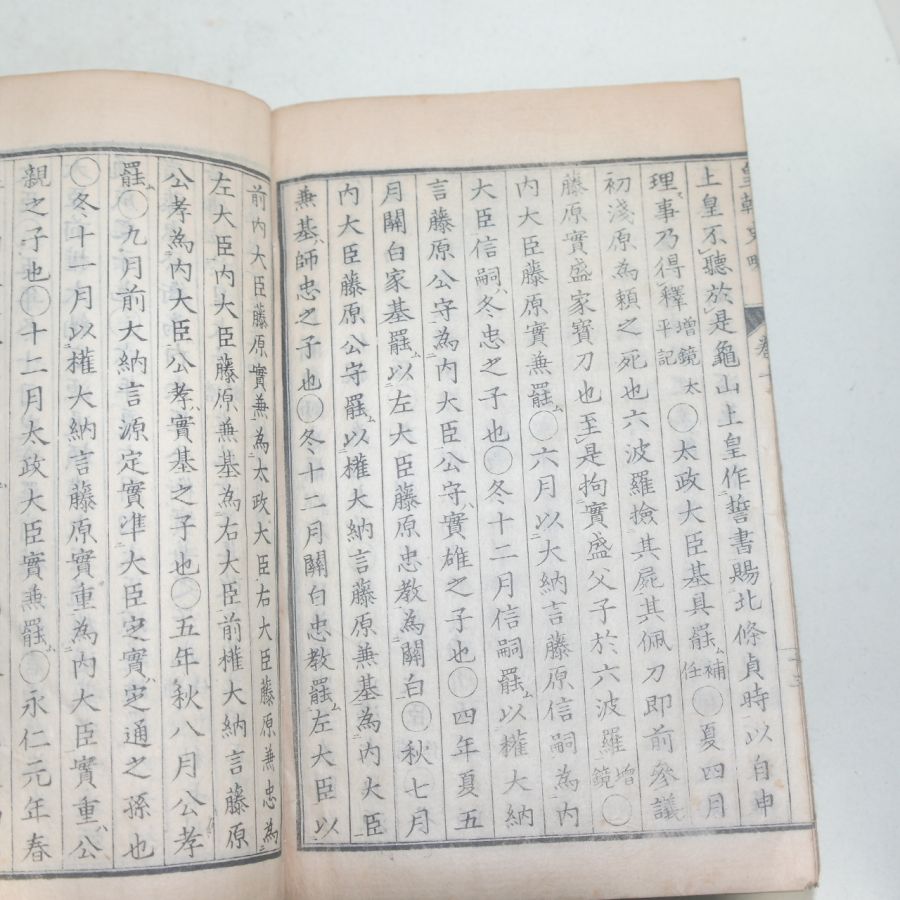 皇朝史略
上皇不聽於是龜山上皇作誓書賜北條貞時以自申
理事乃得釋增鏡太平記〇太政大臣基具罷補任〇夏四月
初淺原為頼之死也六波羅撿其屍其佩刀即前參議
藤原實盛家寶刀也至是拘實盛父子於六波羅增鏡〇
内大臣藤原實兼罷〇六月以大納言藤原信嗣為内
大臣信嗣冬忠之子也〇冬十二月信嗣罷以權大納
言藤原公守為内大臣公守實雄之子也〇四年夏五
月關白家基罷以左大臣藤原忠教為關白〇秋七月
内大臣藤原公守罷以權大納言藤原兼基為内大臣
兼基師忠之子也〇冬十二月關白忠教罷左大臣以
前内大臣藤原實兼為太政大臣右大臣藤原兼忠為
左大臣内大臣藤原兼基為右大臣前權大納言藤原
公孝為内大臣公孝實基之子也〇五年秋八月公孝
罷〇九月前大納言源定實准大臣定實定通之孫也
〇冬十一月以權大納言藤原實重為内大臣實重公
親之子也〇十二月太政大臣實兼罷〇永仁元年春